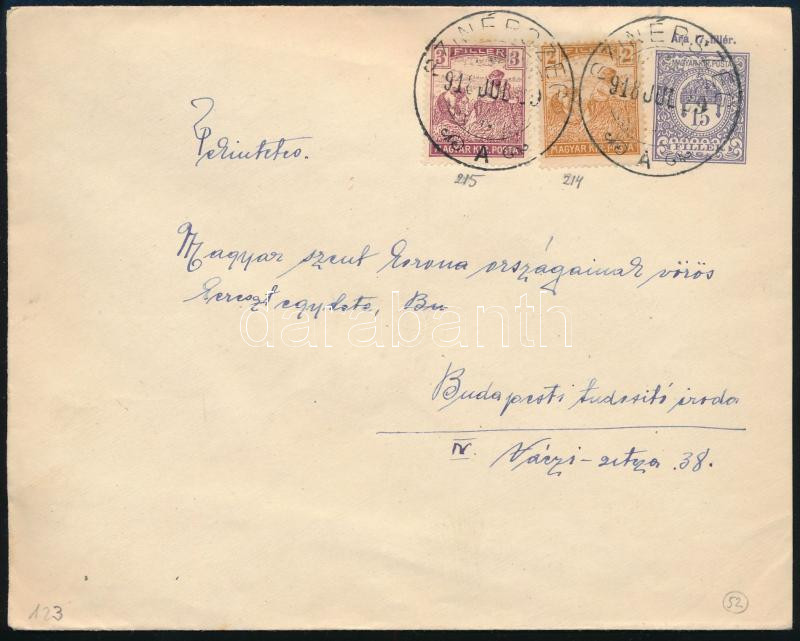 Ára 17 fillér.
3 FILLÉR 3
MAGYAR KIR. POSTA
2 FILLÉR 2
MAGYAR KIR. POSTA
MAGYAR KIR. POSTA
15
FILLÉR
918 JUL
A
918 JUL
A
215
214
Tekintetes.
Magyar szent korona országainak vörös
kereszt egylete, Bu
darabanth
Budapesti tudositó iroda
IV. Váczi-utza 38.
123
52